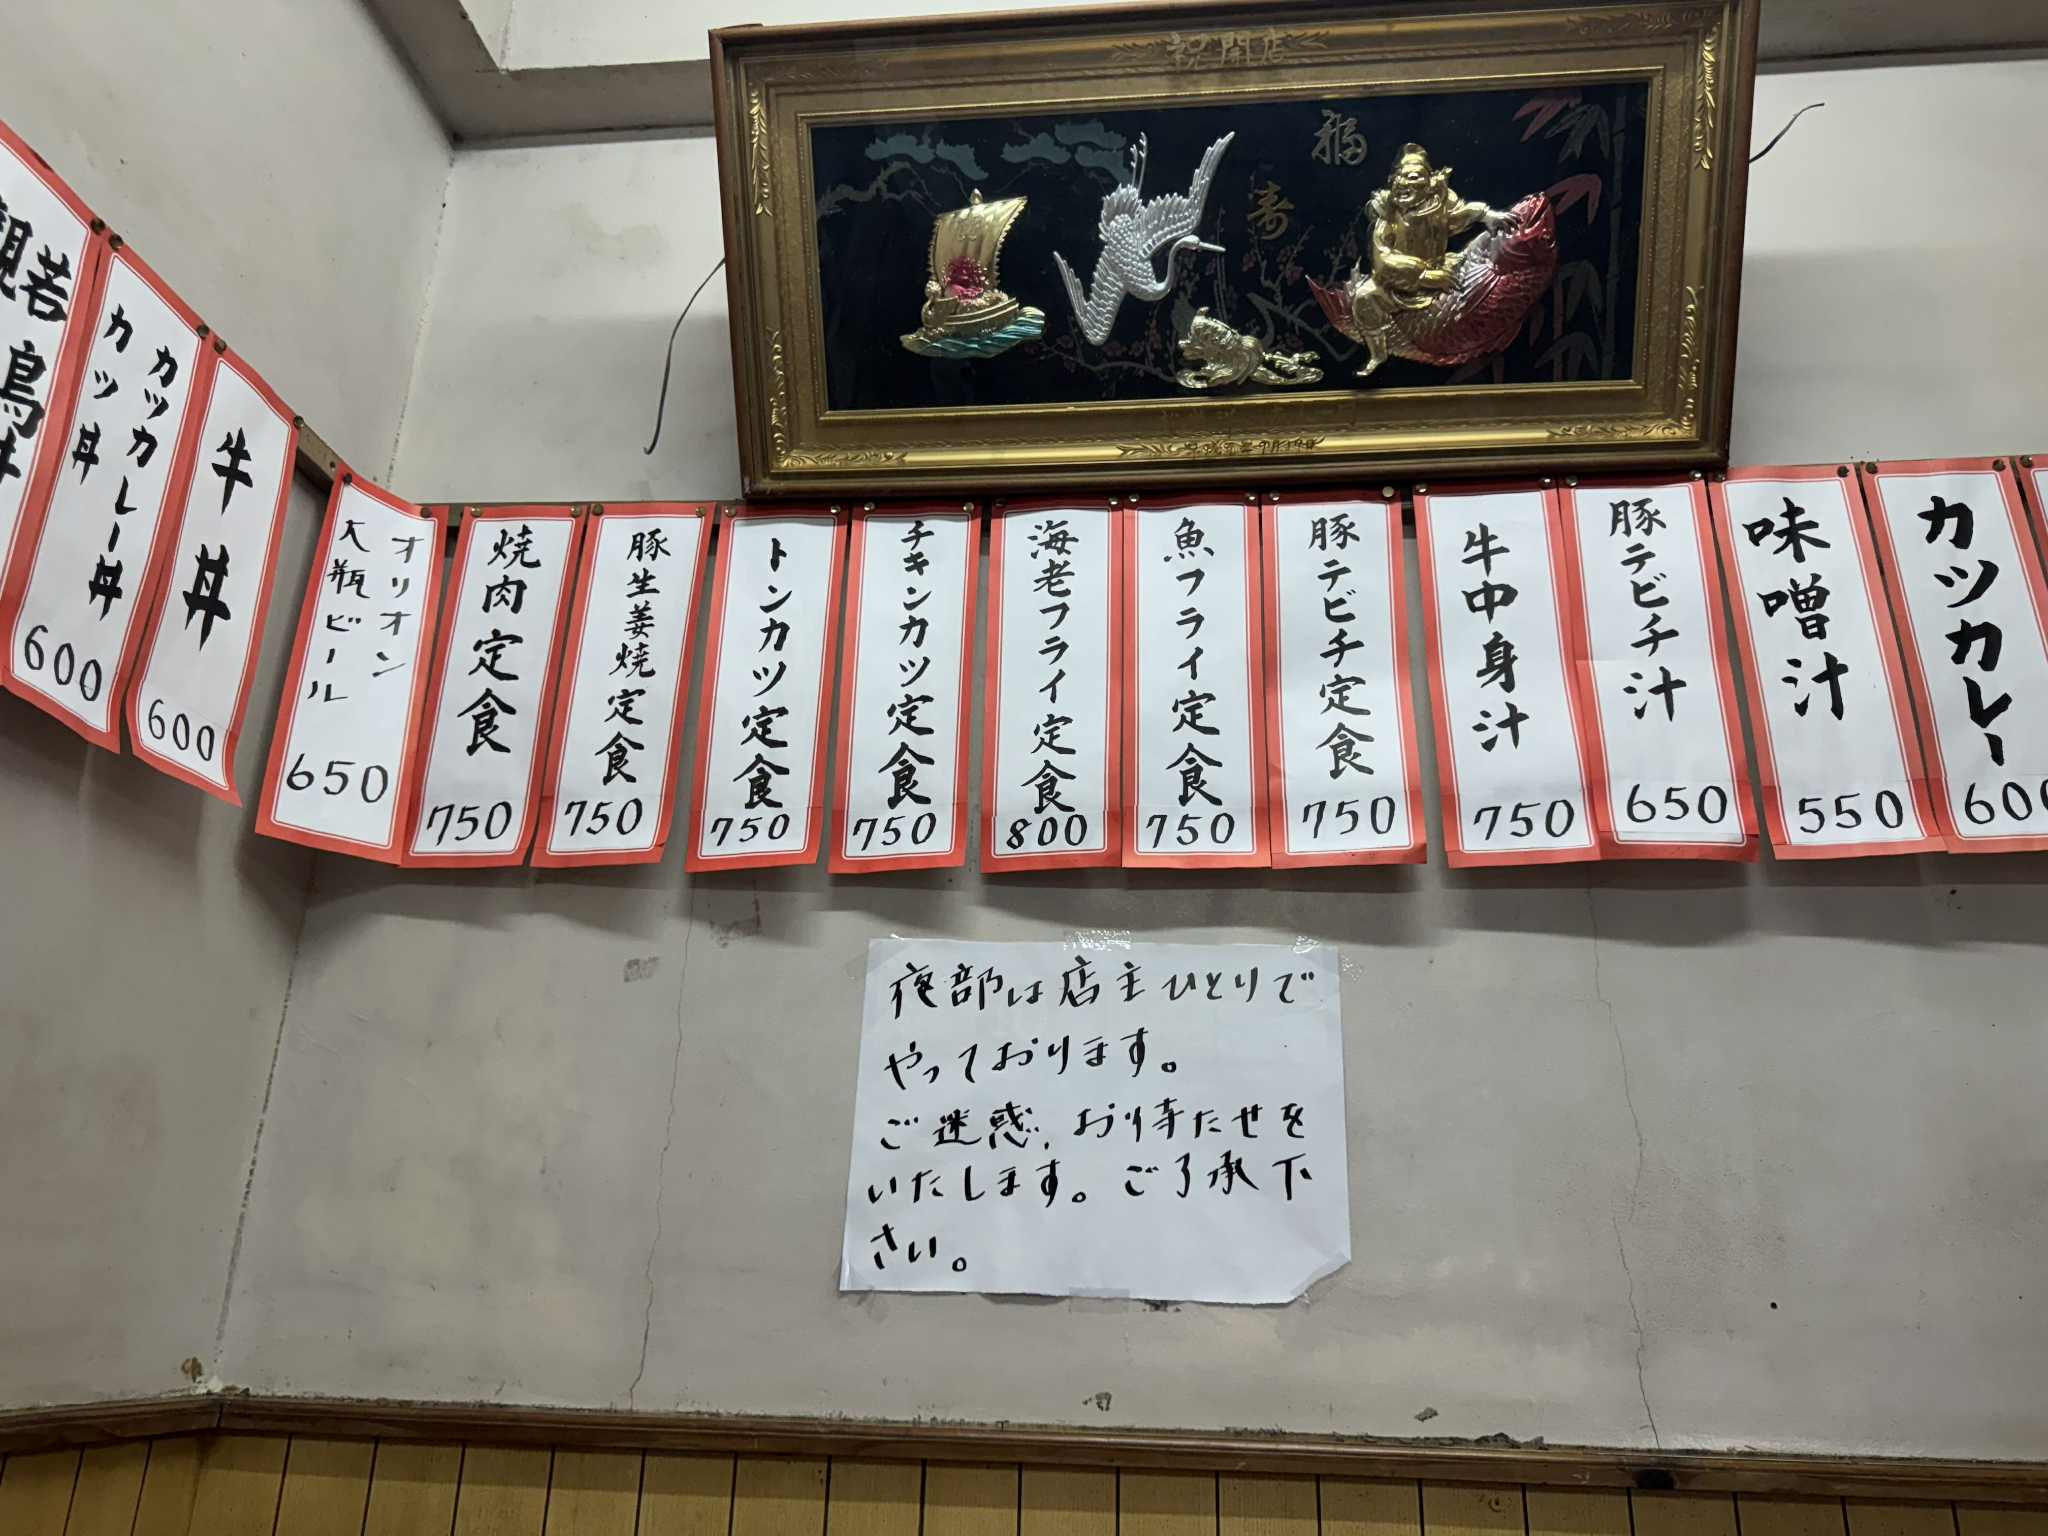 祝開店
福
寿
カツカレー丼
カツ丼
600
牛丼
600
オリオン
大瓶ビール
650
焼肉定食
750
豚生姜焼定食
750
トンカツ定食
750
チキンカツ定食
750
海老フライ定食
800
魚フライ定食
750
豚テビチ定食
750
牛中身汁
750
豚テビチ汁
650
味噌汁
550
カツカレー
600
夜部は店主ひとりで
やっております。
ご迷惑、お待たせを
いたします。ご了承下
さい。